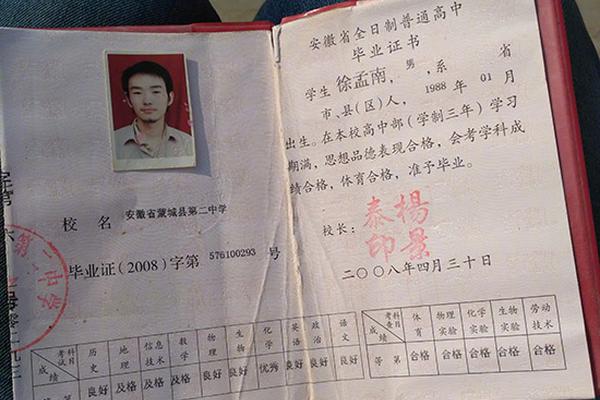 校名 安徽省蒙城县第二中学
毕业证(2008)字第 576100293 号
考试科目 历史 地理 信息技术 数学 物理 生物 化学 英语 政治 语文
成绩 良好 及格 及格 及格 良好 良好 优秀 良好 良好 良好
安徽省全日制普通高中
毕业证书
学生 徐孟南,男,系 省
市、县(区)人,1988 年 01 月
出生。在本校高中部(学制三年)学习
期满,思想品德表现合格,会考学科成
绩合格,体育合格,准予毕业。
校长:
楊景泰印
二〇〇八年四月三十日
考查科目 体育 物理实验 化学实验 生物实验 劳动技术
成绩 等第 合格 合格 合格 合格 合格